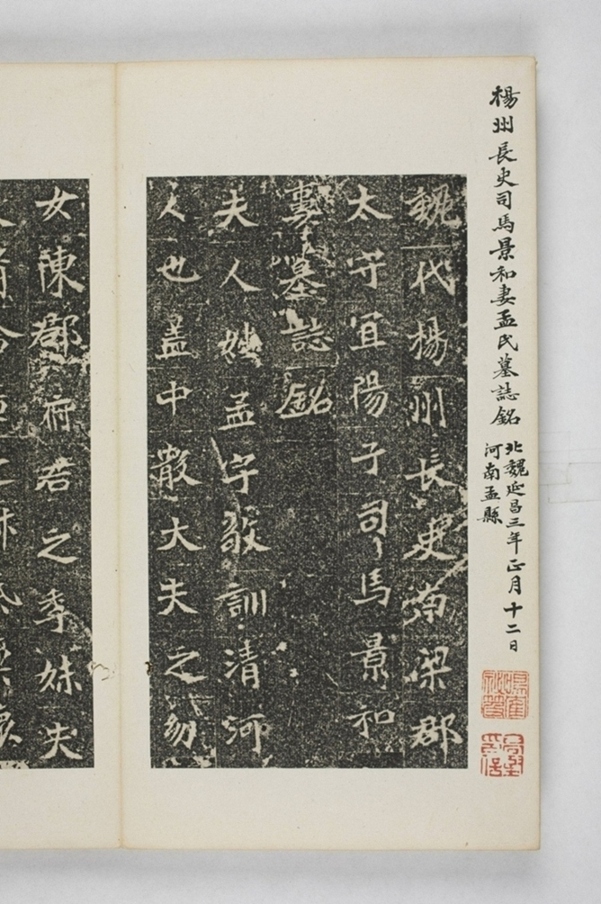 楊州長史司馬景和妻孟氏墓誌銘
北魏延昌三年正月十二日
河南孟縣
魏代楊州長史南梁郡
太守宜陽子司馬景和
妻墓誌銘
夫人姓孟字敬訓清河
人也盖中散大夫之幼
女陳郡府君之季妹夫